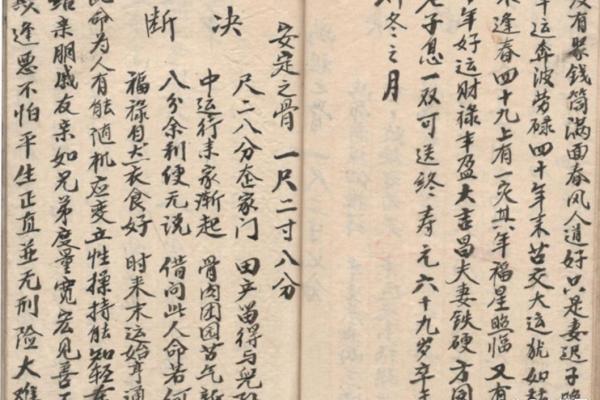 没有聚钱筒满面春风人道好只是妻迟子晚
年运奔波劳碌四十年来苦交大运犹如枯
木逢春四十九上有一灾其年福星照临又有
年好运财禄丰盈大吉昌夫妻铁硬方同
老子息一双可送终寿元六十九岁卒于
冬之月
安定之骨 一尺二寸八分
决断
尺二八分在家门 田产留得与儿孙
中运行来家渐起 骨肉团圆苦气新
八分余利便无说 借问此人命若何
福禄自然衣食好 时来末运始亨通
此命为人有能随机应变立性操持能知轻重
结亲朋戚友亲如兄弟度量宽宏见善不
欺逢恶不怕平生正直并无刑险大难